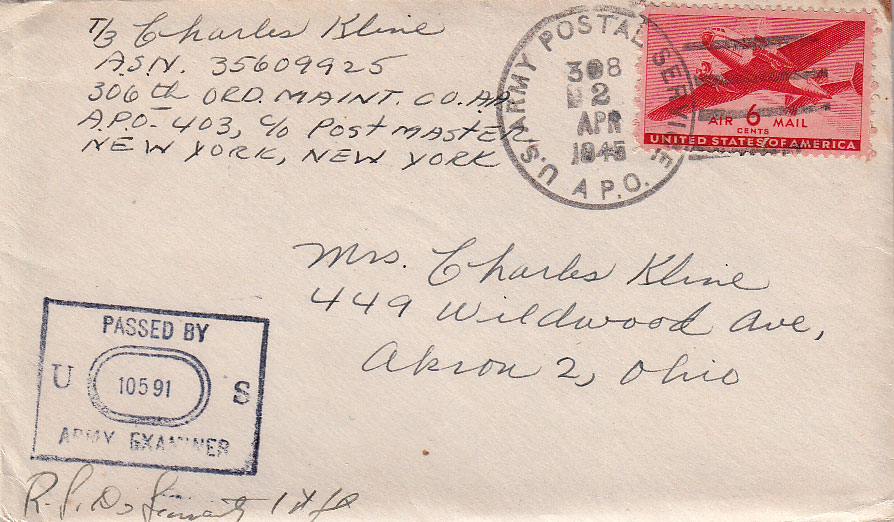 T/3 Charles Kline
A.S.N. 35609925
306th ORD. MAINT. CO. AA
A.P.O. 403, c/o POSTMASTER
NEW YORK, NEW YORK
U.S. ARMY POSTAL SERVICE
308
2
APR
1945
A.P.O.
AIR 6 MAIL
CENTS
UNITED STATES OF AMERICA
Mrs. Charles Kline
449 Wildwood Ave,
Akron 2, Ohio
PASSED BY
U 10591 S
ARMY EXAMINER